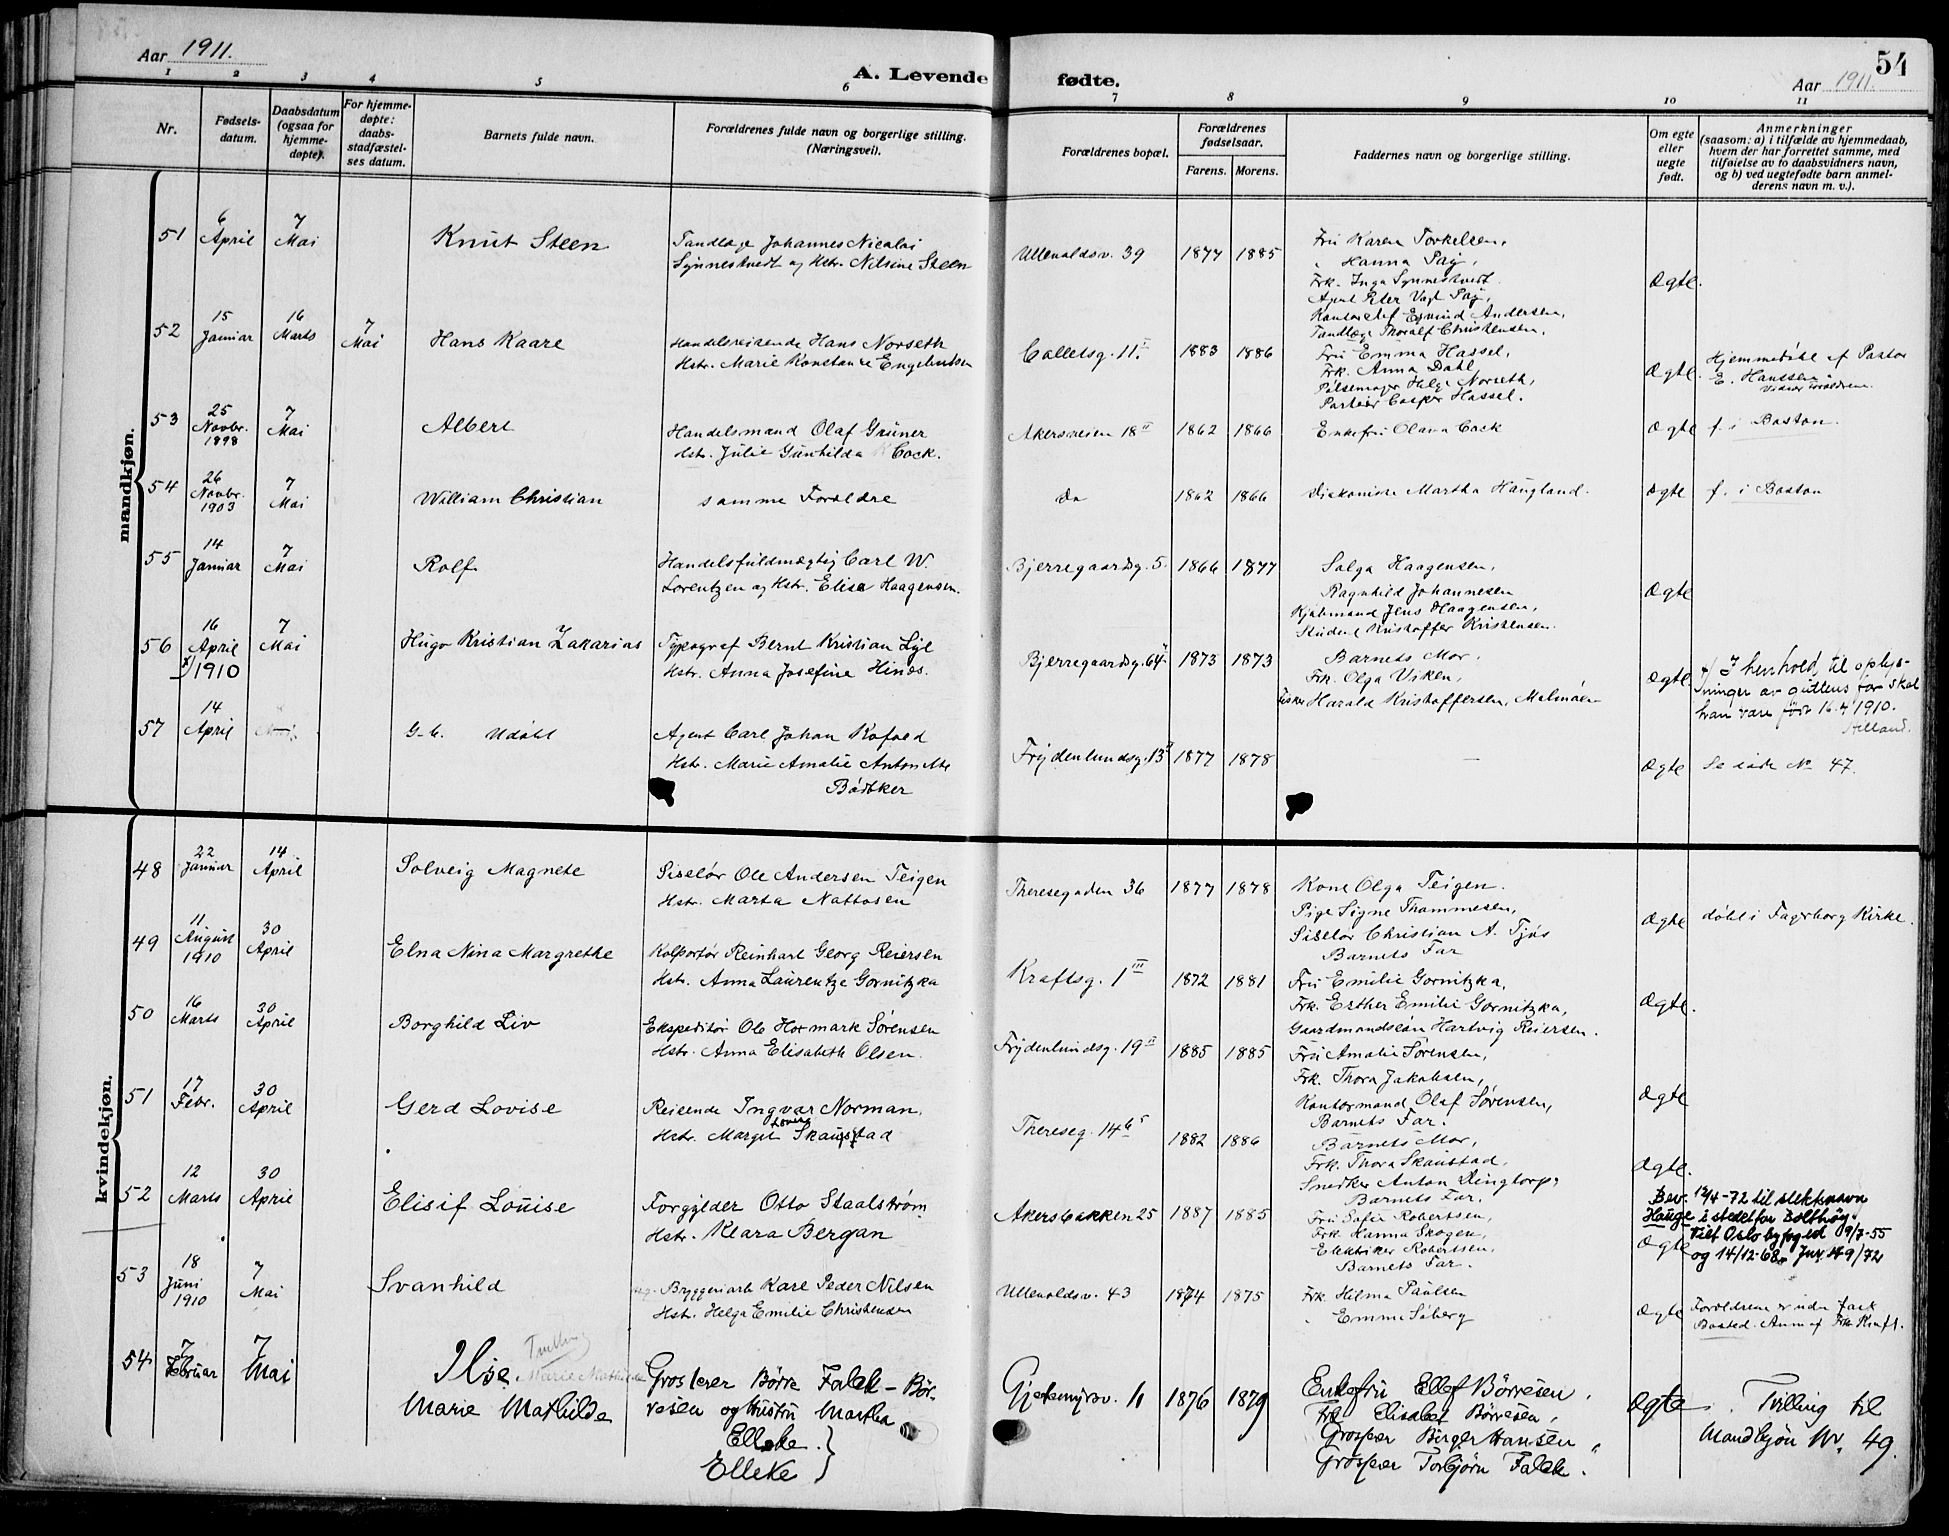 Aar 1911.
A. Levende fødte.
54
Aar 1911.
1 2 3 4 5 6 7 8 9 10 11
Nr.
Fødsels-
datum.
Daabsdatum
(ogsaa for
hjemme-
døpte).
For hjemme-
døpte:
daabs-
stadfæstel-
ses datum.
Barnets fulde navn.
Forældrenes fulde navn og borgerlige stilling.
(Næringsvei).
Forældrenes bopæl.
Forældrenes
fødselsaar.
Farens. Morens.
Faddernes navn og borgerlige stilling.
Om egte
eller
uegte
født.
Anmerkninger
(saasom: a) i tilfælde av hjemmedaab,
hvem der har forrettet samme, med
tilføielse av to daabsvidners navn,
og b) ved uegtefødte barn anmel-
derens navn m. v.).
mandkjøn.
51 6 April 7 Mai Knut Steen
Tandlæge Johannes Nicolai
Synnestvedt og Hstr. Nilsine Steen
Ullevoldsv. 39 1877 1885
Fru Karen Torkelsen,
" Hanna Pay,
Frk. Inga Synnestvedt.
Agent Peter Vogt Pay,
Kontorchef Eyvind Andersen,
Tandlæge Thoralf Christensen,
Ægte.
52 15 Januar 16 Marts 7 Mai Hans Kaare
Handelsreisende Hans Norseth
Hstr. Marie Konstance Engebretsen
Colletsg. 11 I 1883 1886
Fru Emma Hassel,
Frk. Anna Dahl,
Pølsemager Helge Norseth,
Portier Casper Hassel.
Ægte.
Hjemmedøbt af Pastor
E. Hanssen
Vidner Forældrene.
53 25 Novbr. 1898 7 Mai Albert
Handelsmand Olaf Grüner
Hstr. Julie Gunhilda Cock.
Akersveien 18 II 1862 1866
Enkefru Olava Cock
Ægte f. i Boston.
54 26 Novbr. 1903 7 Mai William Christian
samme Forældre
Do 1862 1866
Diakonisse Martha Haugland.
Ægte f. i Boston
55 14 Januar 7 Mai Rolf
Handelsfuldmægtig Carl W.
Lorentzen og Hstr. Elise Haagensen.
Bjerregaardsg. 5. 1866 1877
Solga Haagensen,
Ragnhild Johannesen
Kjøbmand Jens Haagensen,
Student Kristoffer Kristensen.
Ægte
56 16 April x) 1910 7 Mai Hugo Kristian Zakarias
Typograf Bernt Kristian Lye
Hstr. Anna Josefine Hines.
Bjerregaardsg. 64 1873 1873
Barnets Mor.
Frk. Olga Viken,
Fisker Harald Kristoffersen, Malmøen
Ægte.
x) I henhold til oplys-
ninger av guttens far skal
han være født 16.4 1910.
57 14 April G. b. Udøbt
Agent Carl Johan Kofoed
Hstr. Marie Amalie Antonette
Bødtker
Frydenlundsg. 13 II 1877 1878
Ægte Se side No 47.
kvindekjøn.
48 22 Januar 14 April Solveig Magnete
Siselør Ole Andersen Teigen
Hstr. Marta Nattosen
Theresegaden 36 1877 1878
Kone Olga Teigen.
Pige Signe Thommesen,
Siselør Christian A. Tjøs
Barnets Far
Ægte døbt i Fagerborg Kirke.
49 11 August 1910 30 April Elna Nina Margrethe
Kolportør Reinhart Georg Reiersen
Hstr. Anna Laurentze Gornitzka
Kraftsg. 1 III 1872 1881
Fru Emilie Gornitzka,
Frk. Esther Emilie Gornitzka,
Gaardmandssøn Hartvig Reiersen.
Ægte.
50 16 Marts 30 April Borghild Liv
Ekspeditør Ole Hormark Sørensen
Hstr. Anna Elisabeth Olsen.
Frydenlundsg. 19 II 1885 1885
Fru Amalie Sørensen,
Frk. Thora Jakobsen,
Kontormand Olaf Sørensen,
Barnets Far.
Ægte
51 17 Febr. 30 April Gerd Lovise
Reisende Ingvar Norman,
Hstr. Margit Lovise Skaustad
Thereseg. 14 1882 1886
Barnets Mor,
Frk. Thora Skaustad,
Snedker Anton Dingtorp,
Barnets Far.
Ægte.
52 12 Marts 30 April Elisif Louise
Forgylder Otto Staalstrøm
Hstr. Klara Bergan
Akersbakken 25 1887 1885
Fru Sofie Robertsen,
Frk. Hanna Skogen,
Elektriker Robertsen,
Barnets Far.
Ægte
Bev. 12/4-72 til slektsnavn
Hauge i stedet for Bolthøy.
Vielt Oslo byfoged 9/7-55
og 14/12-68. Jnr. 149/72
53 18 Juni 1910 7 Mai Svanhild
Bryggeriarb Karl Peder Nilsen
Hstr. Helga Emilie Christensen
Ullevoldsv. 43 1874 1875
Frk. Helma Paulsen
" Emma Søberg
Ægte
Forældrene er uden fast
Bosted. Anm af Frk Kraft.
54 7 Februar 7 Mai Ilse
Tvilling
Marie Mathilde
Marie Mathilde
Grosserer Børre Falck-Bør-
resen og Hustru Martha
Elleke
Elleke
Gjetemyrsv. 11 1876 1879
Enkefru Ellef Børresen,
Frk Elisabet Børresen,
Grosserer Birger Hansen,
Grosserer Torbjørn Falck.
Ægte
Tvilling til
Mandkjøn Nr. 49.